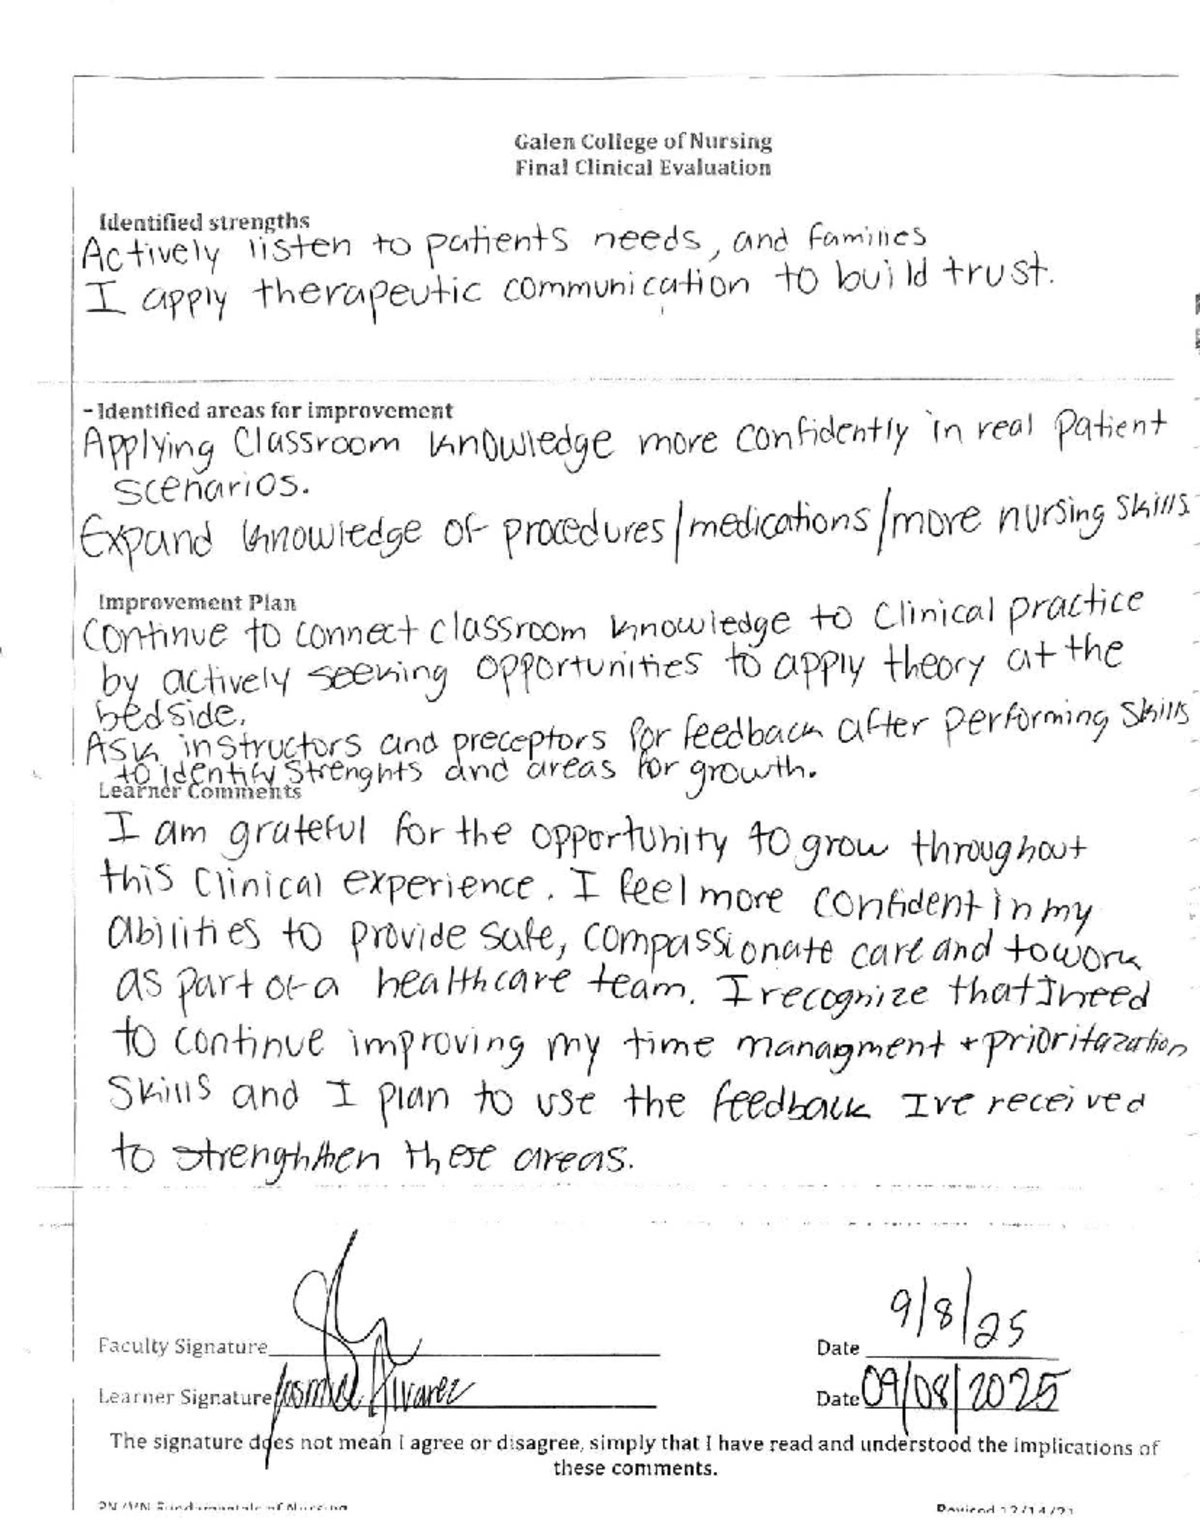 Galen College of Nursing
Final Clinical Evaluation
Identified strengths
Actively listen to patients needs, and families
I apply therapeutic communication to build trust.
- Identified areas for improvement
Applying Classroom knowledge more confidently in real patient
scenarios.
Expand knowledge of procedures/medications/more nursing skills
Improvement Plan
Continue to connect classroom knowledge to Clinical practice
by actively seeking opportunities to apply theory at the
bedside.
Ask instructors and preceptors for feedback after performing skills
to identify strenghts and areas for growth.
Learner Comments
I am grateful for the opportunity to grow throughout
this Clinical experience. I feel more confident in my
abilities to provide safe, compassionate care and to work
as part of a healthcare team. I recognize that I need
to continue improving my time managment + prioritazation
skills and I plan to use the feedback I've received
to strenghthen these areas.
Faculty Signature
Date 9/8/25
Learner Signature Alvarez
Date 09/08/2025
The signature does not mean I agree or disagree, simply that I have read and understood the implications of
these comments.
PN/VN Fundamentals of Nursing
Revised 12/14/21